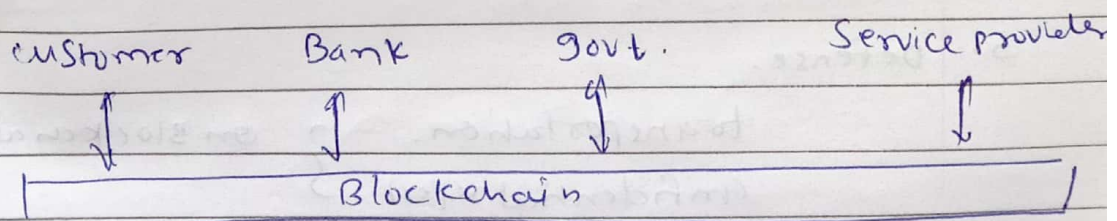 customer Bank govt. Service provider
Blockchain